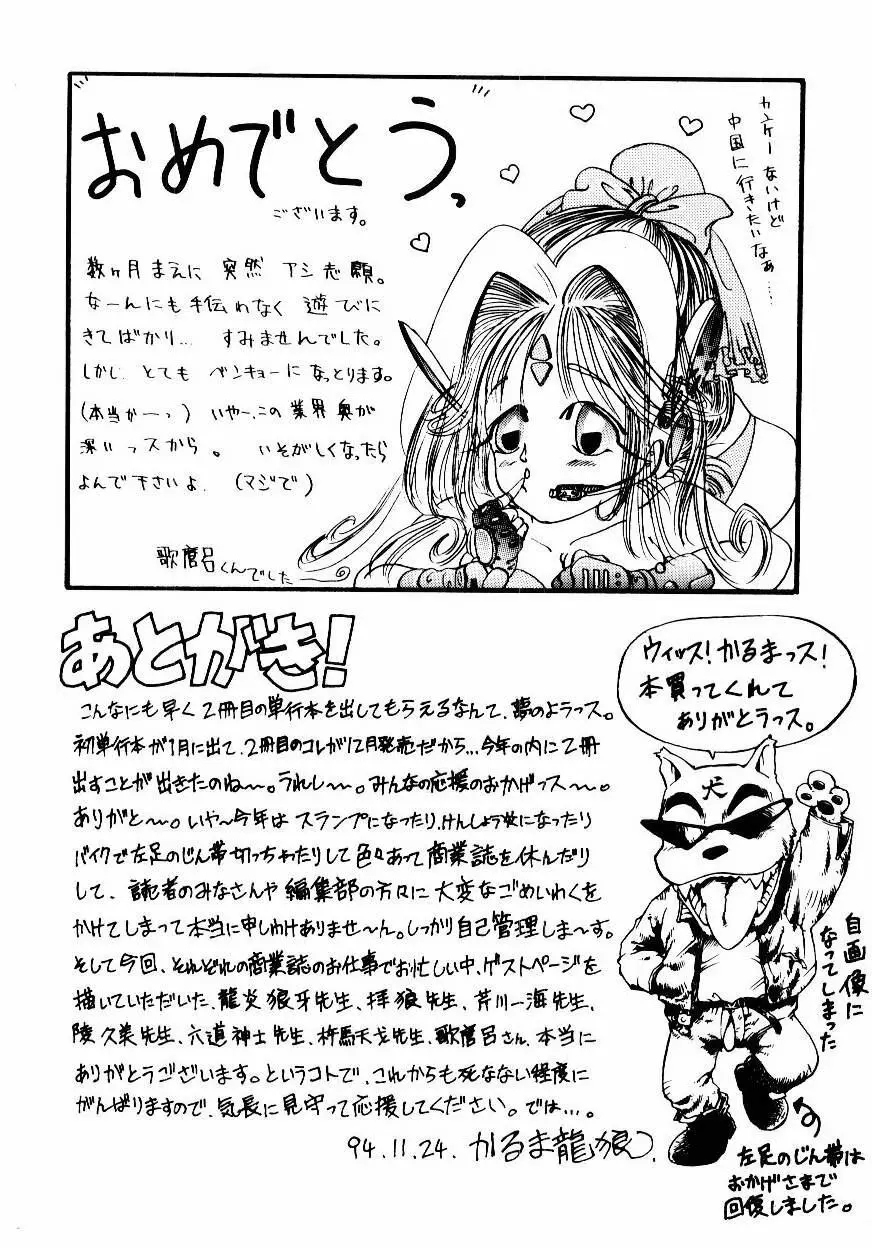 おめでとうっ
ございます。
カンケーないけど
中国に行きたいなぁ…
数ヶ月まえに 突然 アシ志願。
なーんにも手伝わなく 遊びに
きてばかり… すみませんでした。
しかし とても ベンキョーになっとります。
(本当かーっ) いやーこの業界奥が
深いっスから。 いそがしくなったら
よんで下さいよ。(マジで)
歌麿呂くんでした
あとがき!
こんなにも早く2冊目の単行本を出してもらえるなんて、夢のようっス。
初単行本が1月に出て、2冊目のコレが12月発売だから…今年の内に2冊
出すことが出きたのね〜。うれし〜。みんなの応援のおかげっス〜。
ありがと〜。いや〜今年はスランプになったり、けんしょう炎になったり
バイクで左足のじん帯切っちゃたりして色々あって商業誌を休んだり
して、読者のみなさんや編集部の方々に大変なごめいわくを
かけてしまって本当に申しわけありませ〜ん。しっかり自己管理しま〜す。
そして今回、それぞれの商業誌のお仕事でお忙しい中、ゲストページを
描いていただいた、龍炎狼牙先生、拝狼先生、芹川一海先生、
陵久美先生、六道神士先生、杵馬天戈先生、歌麿呂さん、本当に
ありがとうございます。というコトで、これからも死なない程度に
がんばりますので、気長に見守って応援してください。では…。
94.11.24. かるま龍狼
ウィッス!かるまっス!
本買ってくれて
ありがとうっス。
犬
自画像に
なってしまった
左足のじん帯は
おかげさまで
回復しました。